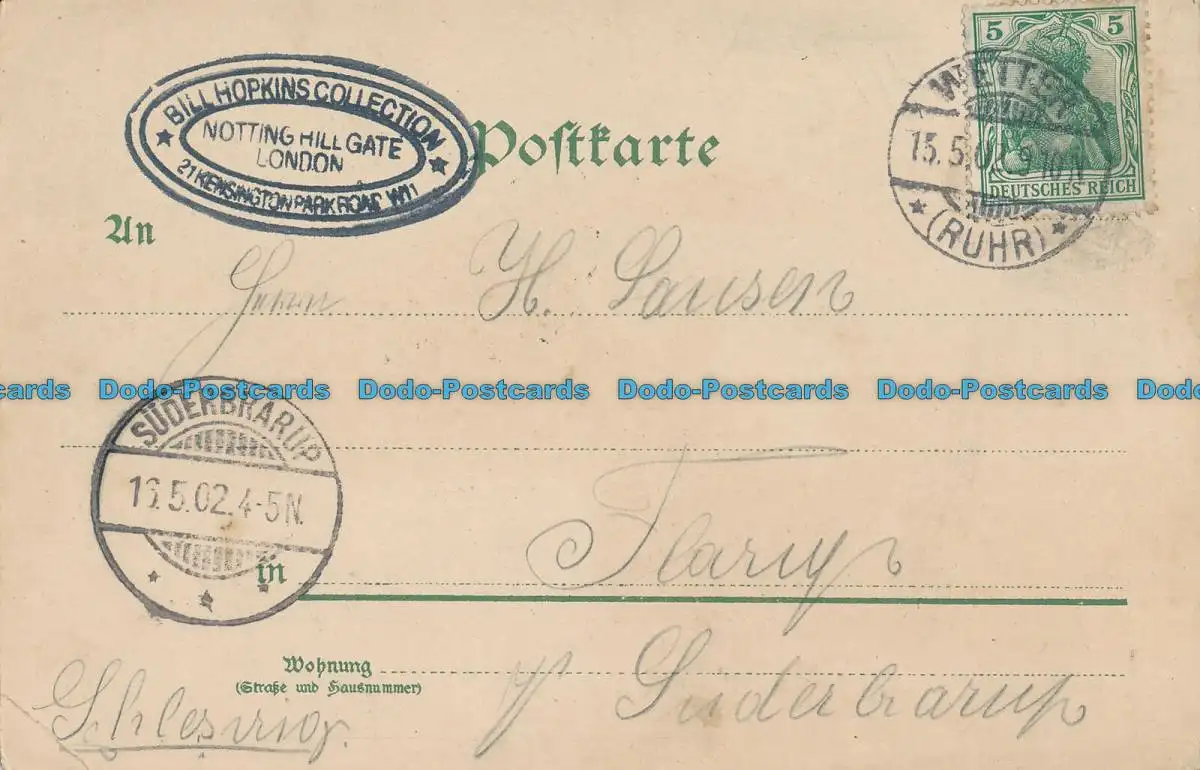 5 5
DEUTSCHES REICH
WETTER
15.5.02.9-10N.
(RUHR)
BILL HOPKINS COLLECTION
NOTTING HILL GATE
LONDON
21 KENSINGTON PARK ROAD W11
Postkarte
An
Herrn H. Lausen
Dodo-Postcards Dodo-Postcards Dodo-Postcards Dodo-Postcards Dodo-Postcards
SÜDERBRARUP
16.5.02.4-5N.
in Flarup
Wohnung
(Straße und Hausnummer)
p Süderbrarup
Schleswig.